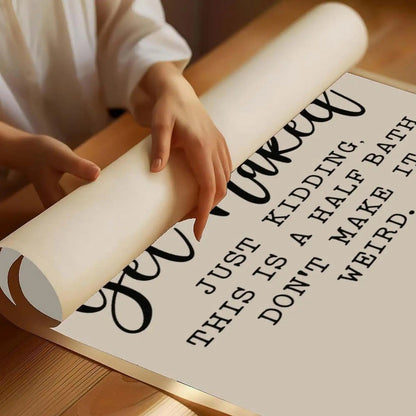 Get Naked
JUST KIDDING,
THIS IS A HALF BATH
DON'T MAKE IT
WEIRD.